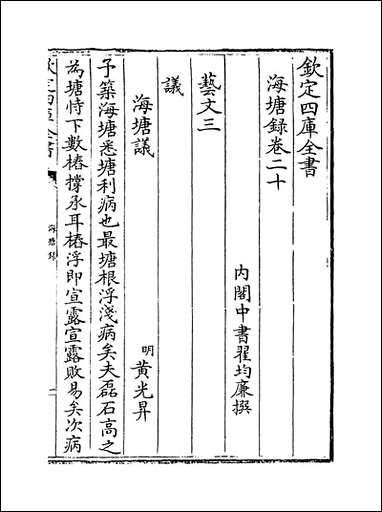 欽定四庫全書
海塘録卷二十
內閣中書翟均廉撰
藝文三
議
海塘議
明 黃光昇
予築海塘悉塘利病也最塘根浮淺病矣夫磊石高之
為塘恃下數樁撐承耳樁浮即宣露宣露敗易矣次病
欽定四庫全書
海塘録